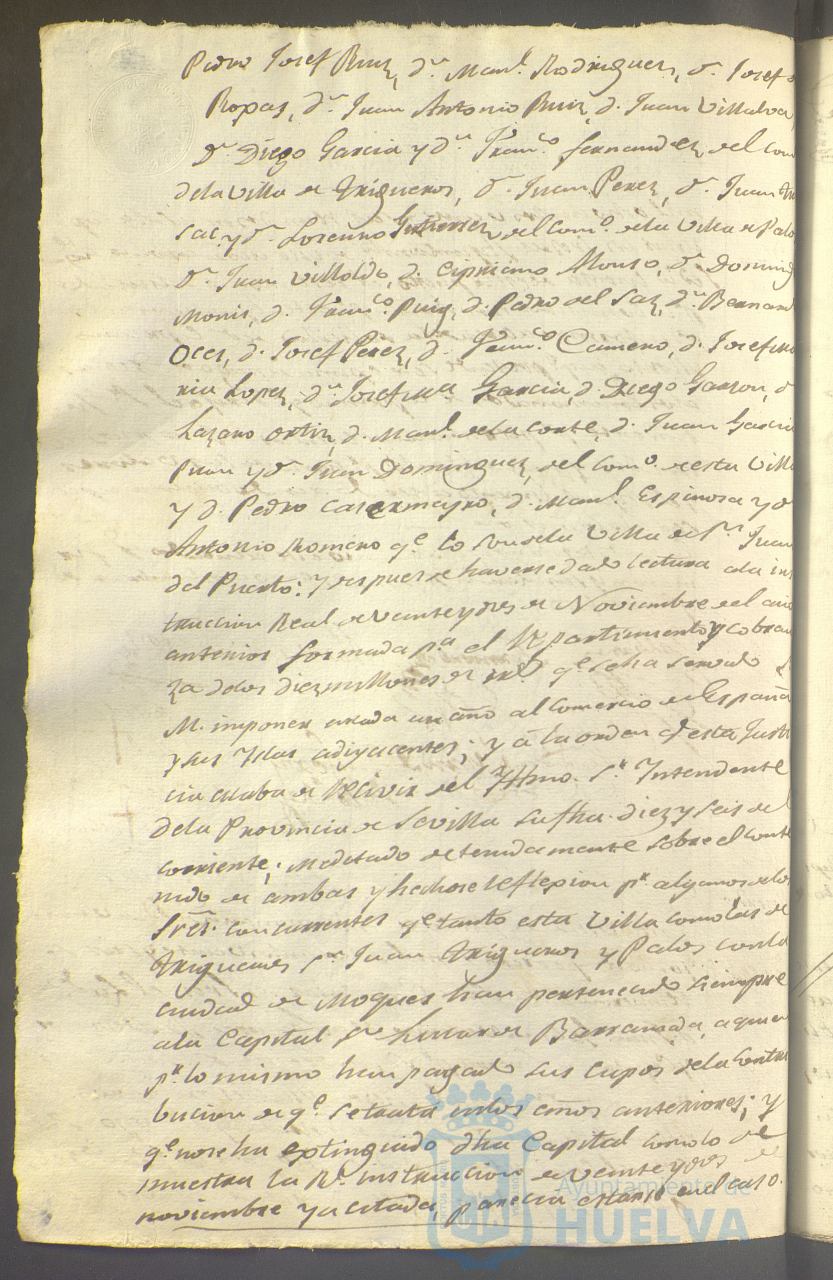 Pedro Josef Ruiz, dn. Manl. Rodriguez, dn. Josef
Ropas, dn. Juan Antonio Ruiz, d. Juan Villalva,
Dn. Diego Garcia y dn. Franco. fernandez, del Com
dela Villa de Trigueros, dn. Juan Perez, dn. Juan
Sac. y dn. Lorenzo Gutierrez del Como. dela Villa de Palo
dn. Juan Villoldo, d. Cipriano Alonso, dn. Doming
Monis, d. Franco. Puig, d. Pedro del Saz, dn. Bernar
Oces, d. Josef Perez, d. Franco. Camero, d. Josef ma
ria Lopez, dn. Josef ma Garcia, d. Diego Garzon, d
Lazaro Ortiz, d. Manl. dela Corte, d. Juan Garcia
y dn. Juan Dominguez, del Como. de esta Villa
y d. Pedro Casermayro, d. Manl. Espinosa y dn
Antonio Romero qe. lo son dela Villa de Sn. Juan
del Puerto: Y despues de haverse dado lectura ala ins
truccion Real de veinte y dos de Noviembre del año
anterior formada pa. el Repartimiento y cobran
za delos diez millones de rs. qe. se ha servido S.
M. imponer cada un año al Comercio de España
y sus Yslas adiyacentes; y á la orden qe esta Justi
cia acaba de recivir del Yllmo. Sr. Yntendente
dela Provincia de Sevilla su fha. diez y seis del
corriente; Meditado detenidamente sobre el conte
nido de ambas y hechose reflexion pr. algunos delos
Sres. concurrentes qe tanto esta Villa como las de
Trigueros Sn. Juan Trigueros y Palos con la
ciudad de Moguer han pertenecido siempre
ala Capital Sn. Lucar de Barrameda, aquien
pr. lo mismo han pagado sus cupos dela Contri
bucion de qe. se trata enlos años anteriores; y
qe. no se ha extinguido dha Capital como lo de
muestra la Rl. instruccion de veinte y dos de
noviembre ya citada, parecia estarse en el caso.
Ayuntamiento de
HUELVA